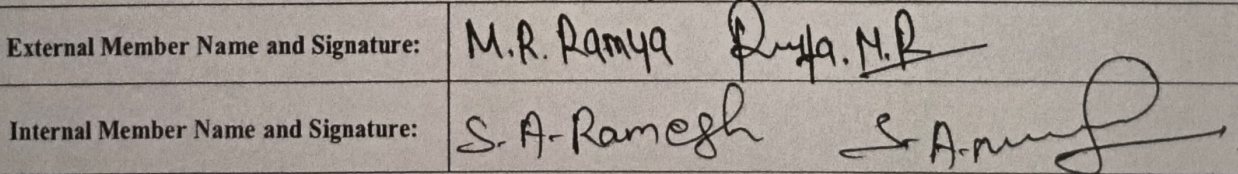 External Member Name and Signature: M.R. Ramya Ramya. M.R
Internal Member Name and Signature: S. A. Ramesh